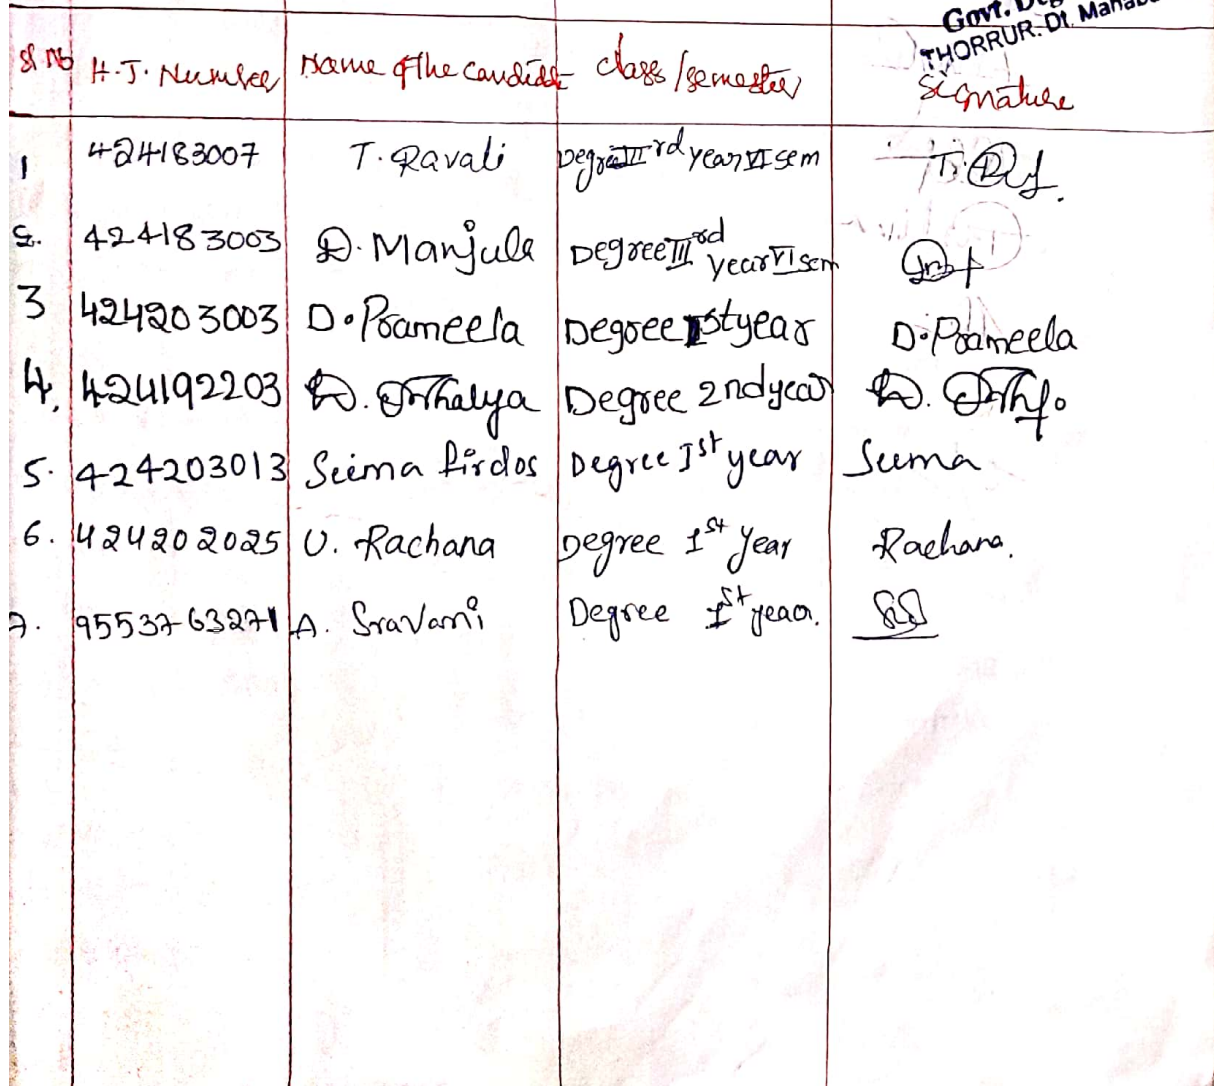 Govt.
THORRUR. Dt. Mahabu
Sl No H.T. Number Name of the candidate class/semester Signature
1 424183007 T. Ravali Degree III rd year VI sem
2. 424183003 D. Manjula Degree III rd year VI sem
3 424203003 D. Prameela Degree Ist year D. Prameela
4. 424192203 Degree 2nd year
5. 424203013 Seema firdos Degree Ist year Seema
6. 424202025 V. Rachana Degree 1st Year Rachana.
7. 9553763271 A. Sravani Degree Ist year.